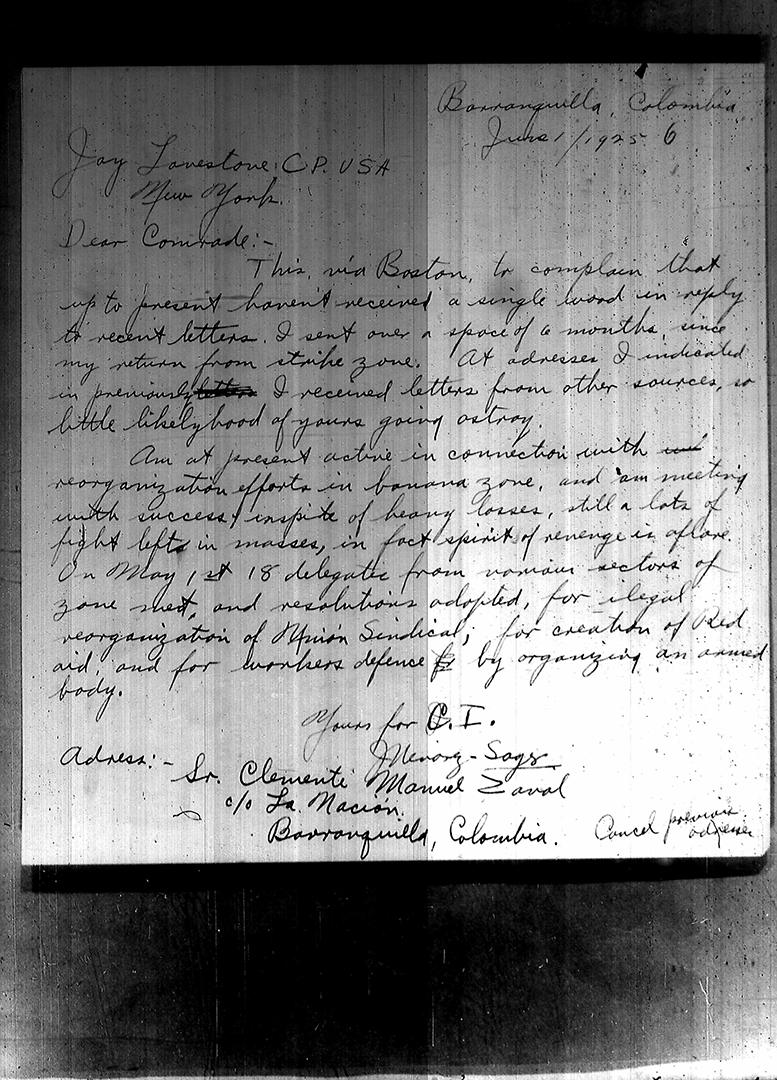 Barranquilla, Colombia
June 1/1925 6
Jay Lovestone, C.P. USA
New York.
Dear Comrade:-
This, via Boston, to complain that
up to present haven't received a single word in reply
to recent letters. I sent over a space of 6 months, since
my return from strike zone. At adresses I indicated
in previously I received letters from other sources, so
little likelyhood of yours going astray.
Am at present active in connection with
reorganization efforts in banana zone, and am meeting
with success; inspite of heavy losses, still a lots of
fight left in masses, in fact spirit of revenge is aflare.
On May, 1st 18 delegates from various sectors of
zone met, and resolutions adopted, for ilegal
reorganization of Unión Sindical; for creation of Red
aid, and for workers defence by organizing an armed
body.
Yours for C.I.
Adress:-
Sr. Clemente Manuel Zaval
c/o La Nación,
Barranquilla, Colombia.
Cancel previous
adresses